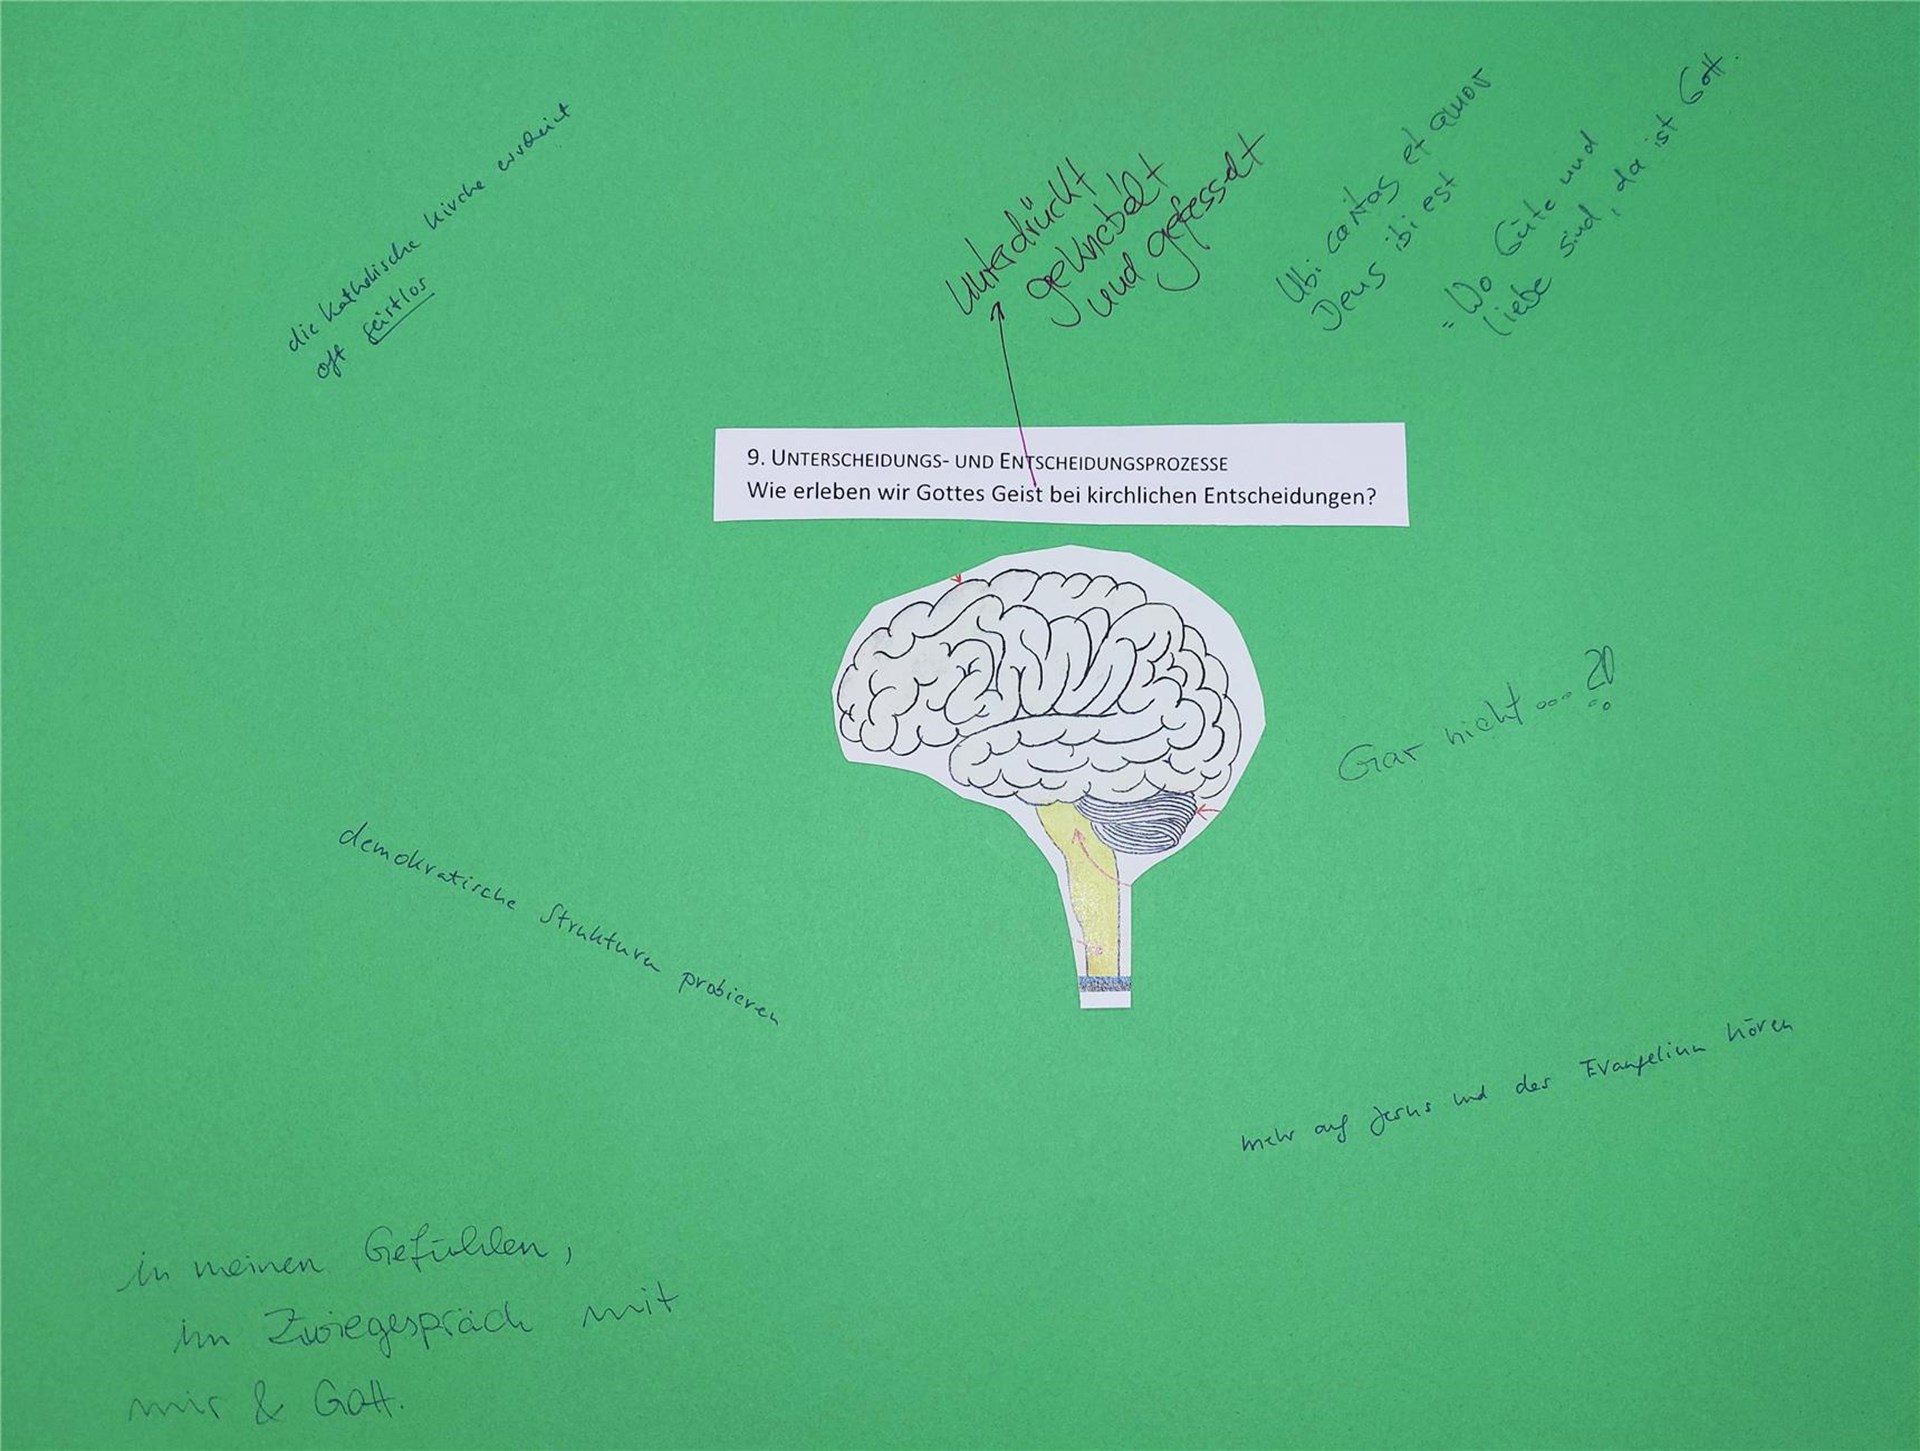 die Katholische Kirche erscheint
oft geistlos
unterdrückt
geknebelt
und gefesselt
Ubi caritas et amor
Deus ibi est
= Wo Güte und
Liebe sind, da ist Gott.
9. UNTERSCHEIDUNGS- UND ENTSCHEIDUNGSPROZESSE
Wie erleben wir Gottes Geist bei kirchlichen Entscheidungen?
Gar nicht....
demokratische Strukturen probieren
mehr auf Jesus und das Evangelium hören
in meinen Gefühlen,
im Zwiegespräch mit
mir & Gott.